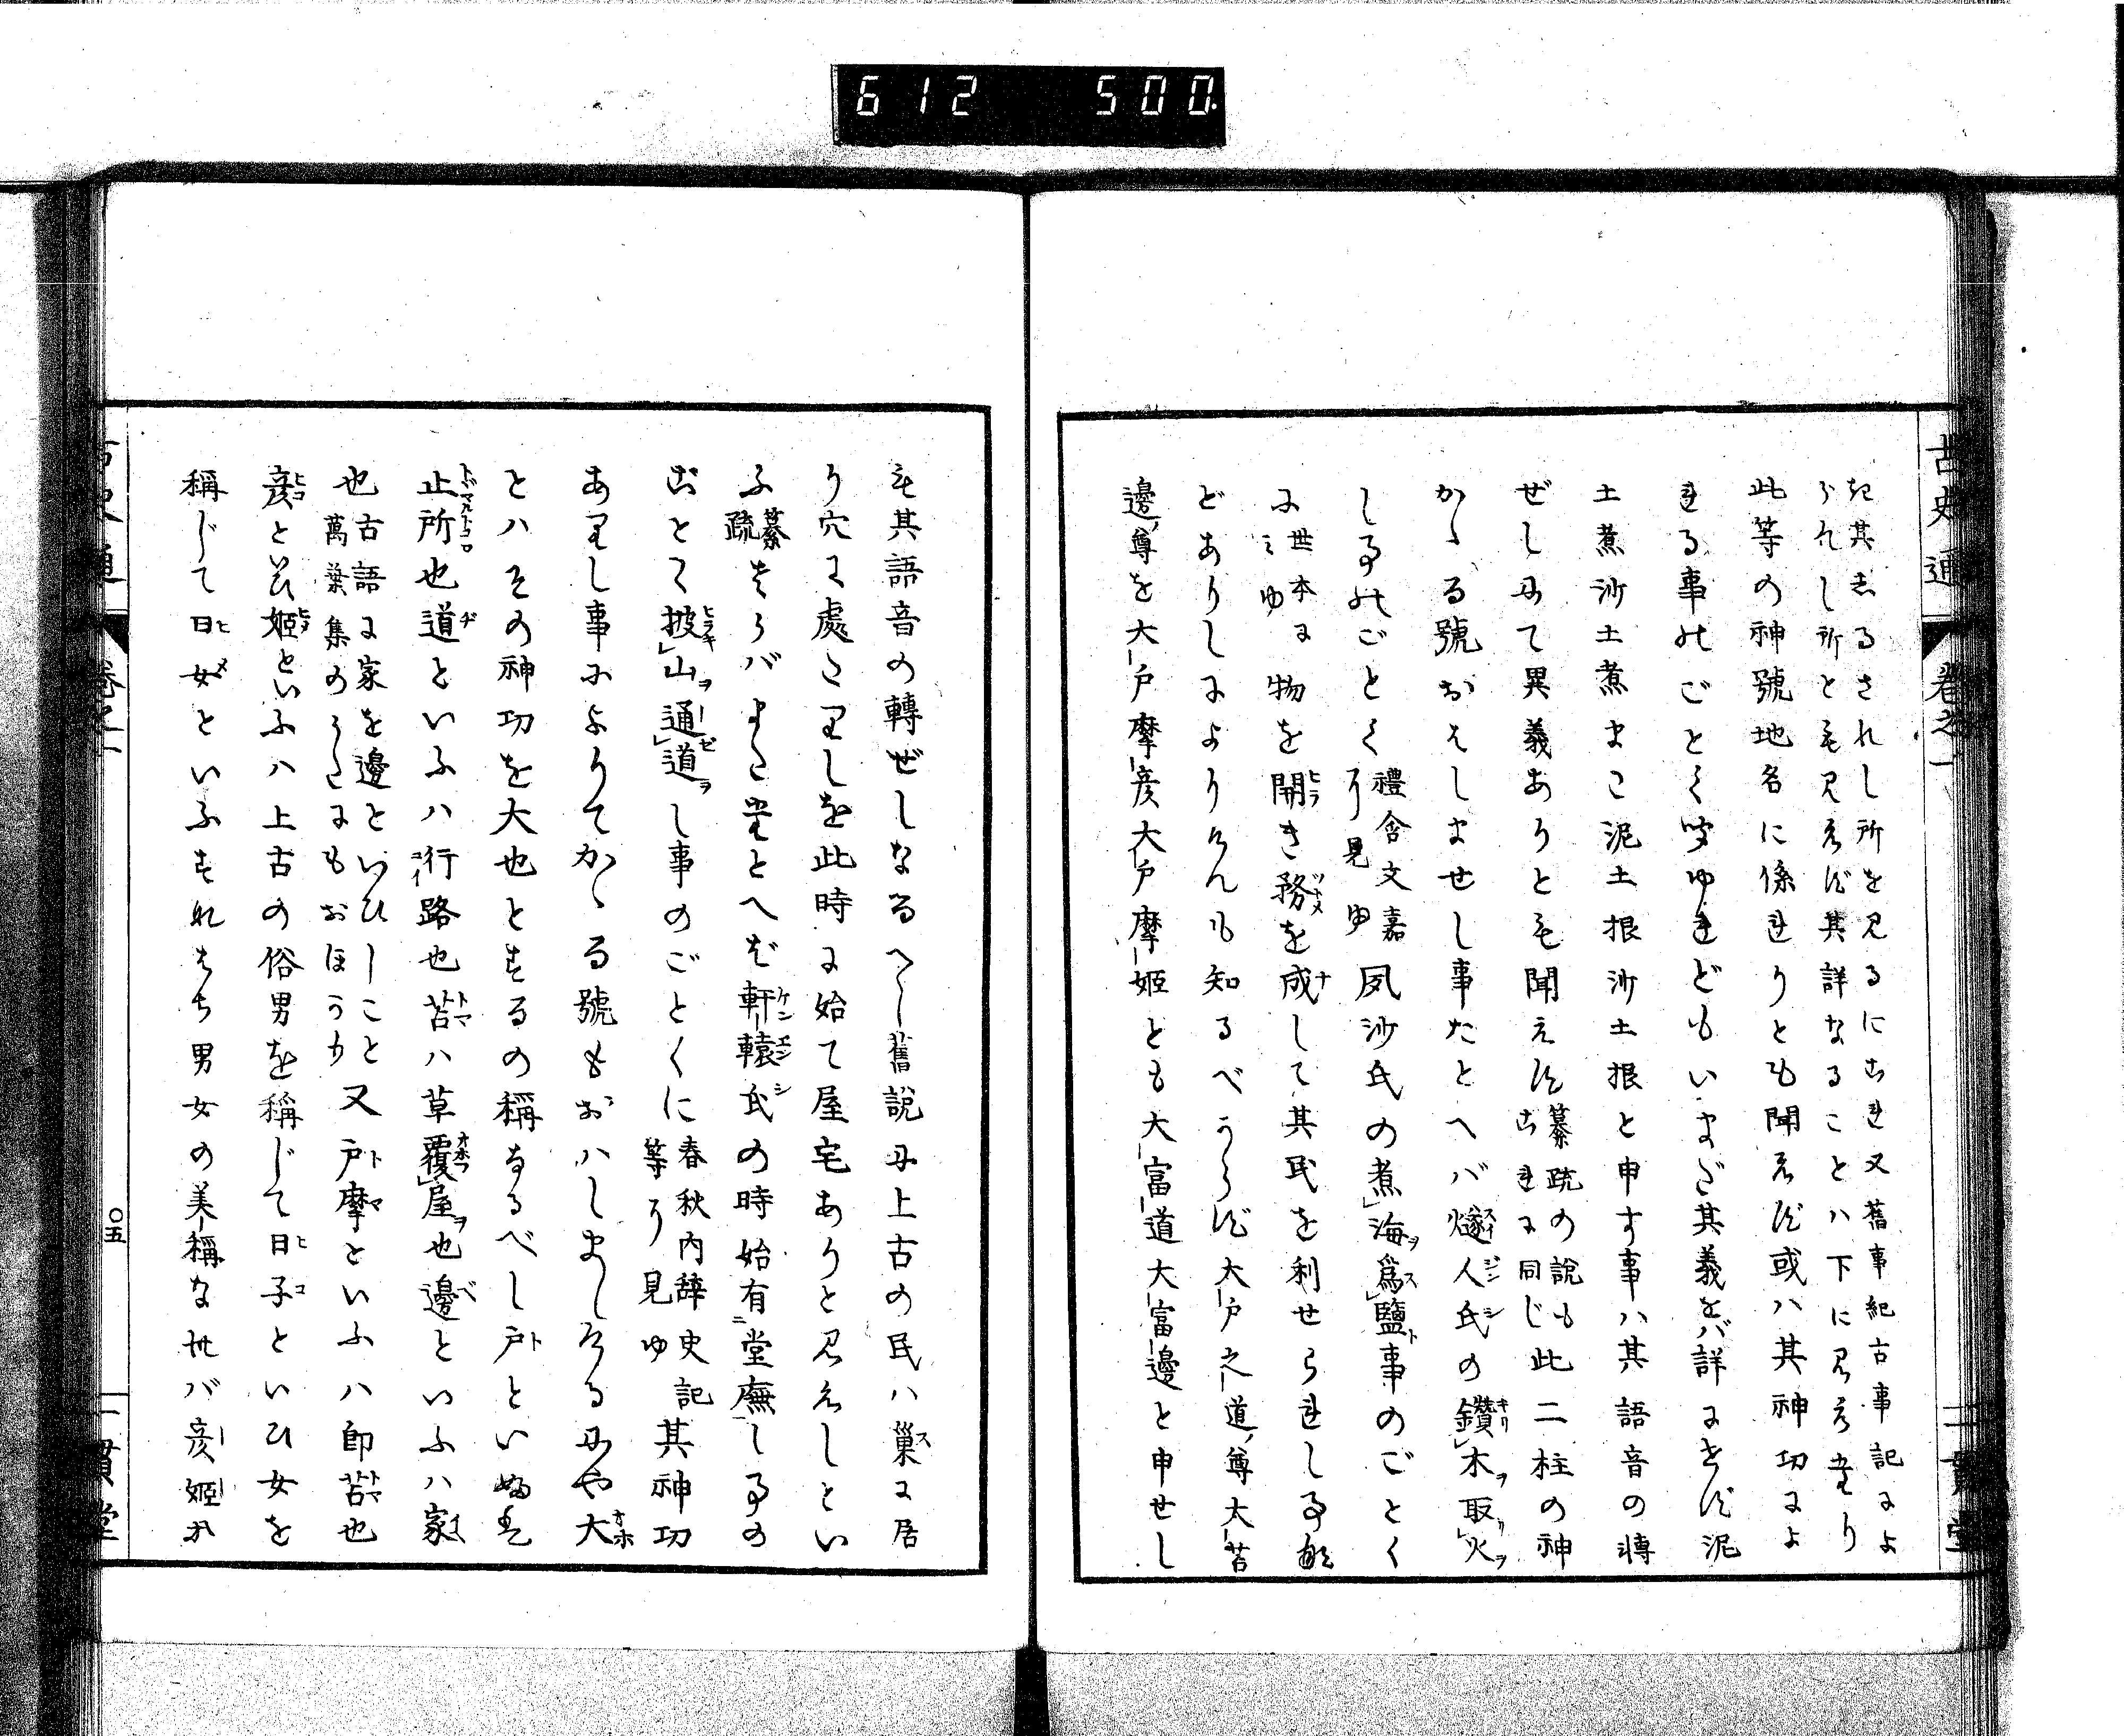 612 500.
古史通 卷之一
幷其しるされし所を見るに是又舊事紀古事記によ
られし所とも見えず其詳なることハ下に見えたり
此等の神號地名に係れりとも聞えず或ハ其神功によ
れる事のごとく聞ゆれどもいまだ其義をバ詳にせず泥
土煮沙土煮また泥土根沙土根と申す事ハ其語音の轉
ぜしにて異義ありとも聞えず 纂疏の說も是に同じ 此二柱の神
かゝる號おはしませし事たとへバ燧人氏の鑽木取火
し事のごとく 禮含文嘉に見ゆ 夙沙氏の煮海爲鹽事のごとく
に 世本にみゆ 物を開き務を成して其民を利せられし事な
どありしによりけんも知るべからず大戶之道尊大苫
邊尊を大戶摩彥大戶摩姬とも大富道大富邊と申せし
も其語音の轉ぜしなるべし舊說に上古の民ハ巢に居
り穴に處たりしを此時に始て屋宅ありと見えしとい
ふ 纂疏 さらバまたたとへば軒轅氏の時始有堂廡し事の
ごとく披山通道し事のごとくに 春秋內辭史記等に見ゆ 其神功
ありし事によりてかゝる號もおハしましけるにや大
とハその神功を大也とするの稱なるべし戶といふハ
止所也道といふハ行路也苫ハ草覆屋也邊といふハ家
也 古語に家を邊といひしこと萬葉集のうたにもおほうか 又戶摩といふハ卽苫也
彥といひ姬といふハ上古の俗男を稱じて日子といひ女を
稱じて日女といふすなはち男女の美稱なれバ彥姬の
古史通 卷之一
〇五
一貫堂